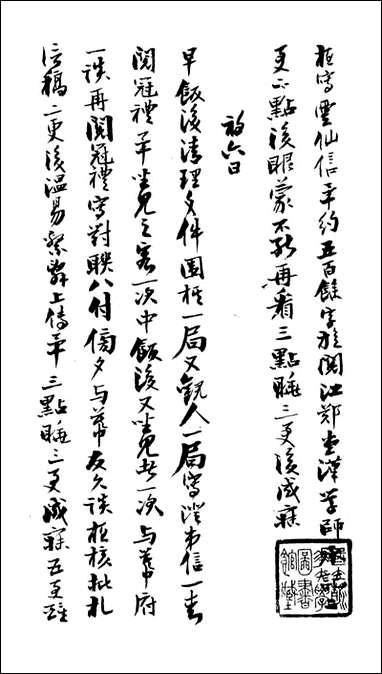 夜寫雲仙信畢約五百餘字於閱江鄭堂漢學師
更二點後眼蒙不能再看三點睡三更後成寐
初六日
早飯後清理文件圍棋一局又觀人一局寫澄弟信一書
閱冠禮畢坐見之客一次中飯後又坐見者一次與幕府
一談再閱冠禮寫對聯八付傍夕與幕友久談夜核批札
信稿二更後溫易繫辭上傳畢三點睡三更成寐五更醒